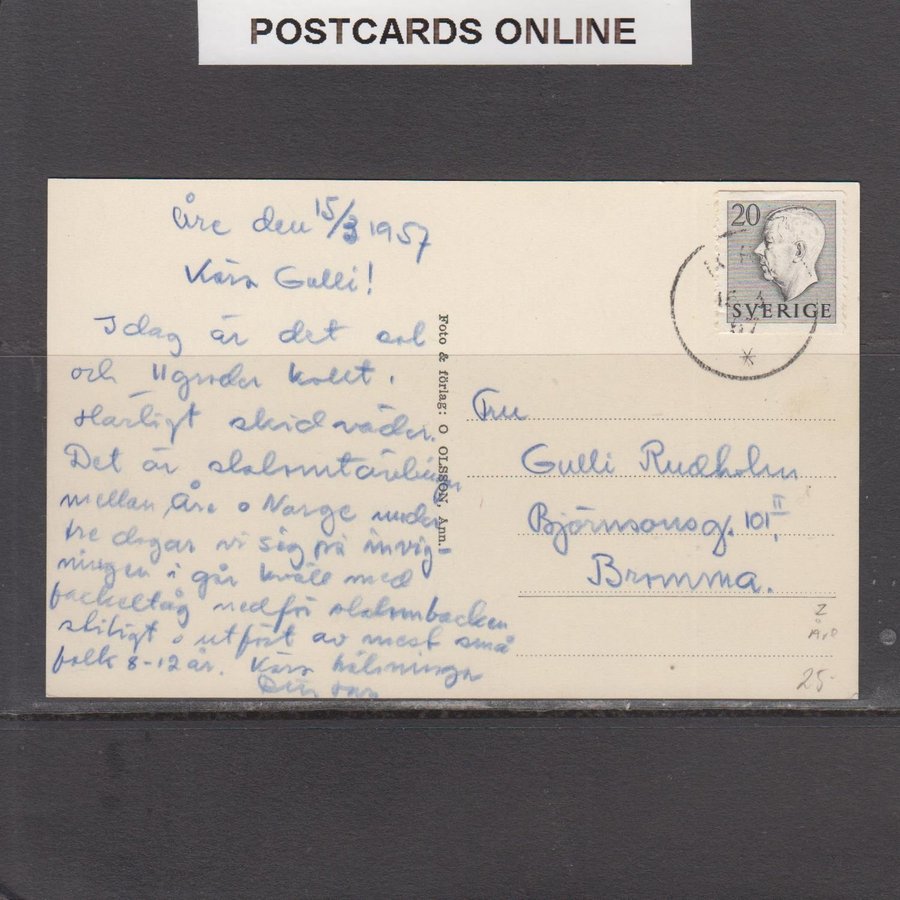 POSTCARDS ONLINE
Åre den 15/3 1957
Kära Gulli!
Idag är det sol
och 11 grader kallt.
Härligt skidväder.
Det är
mellan Åre o Norge under
tre dagar vi såg på invig-
ningen i går kväll med
fackeltåg nedför slalombacken
stiligt o utfört av mest små
folk 8-12 år. Kära hälsningar
Din
Foto & förlag: O OLSSON, Ann.
20
SVERIGE
Fru
Gulli Rudholm
Björnsonsg. 101 II
Bromma.
Z
25-